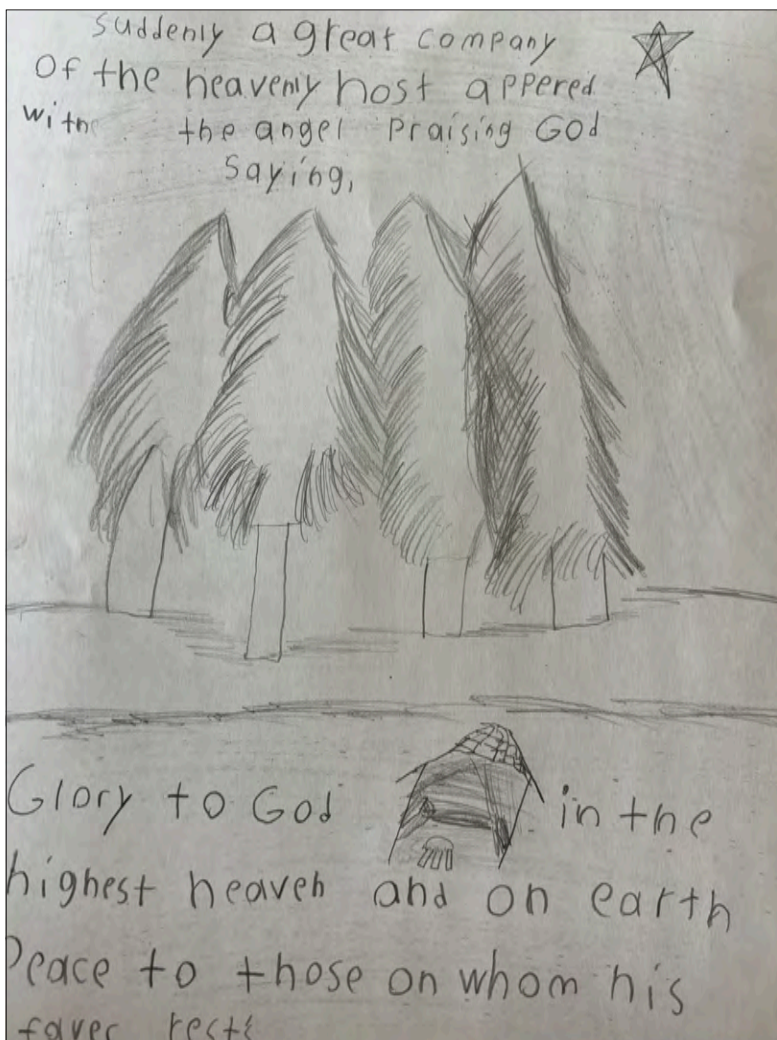 suddenly a great company
of the heavenly host appered
the angel Praising God
saying,
Glory to God in the
highest heaven and on earth
Peace to those on whom his
faver rests